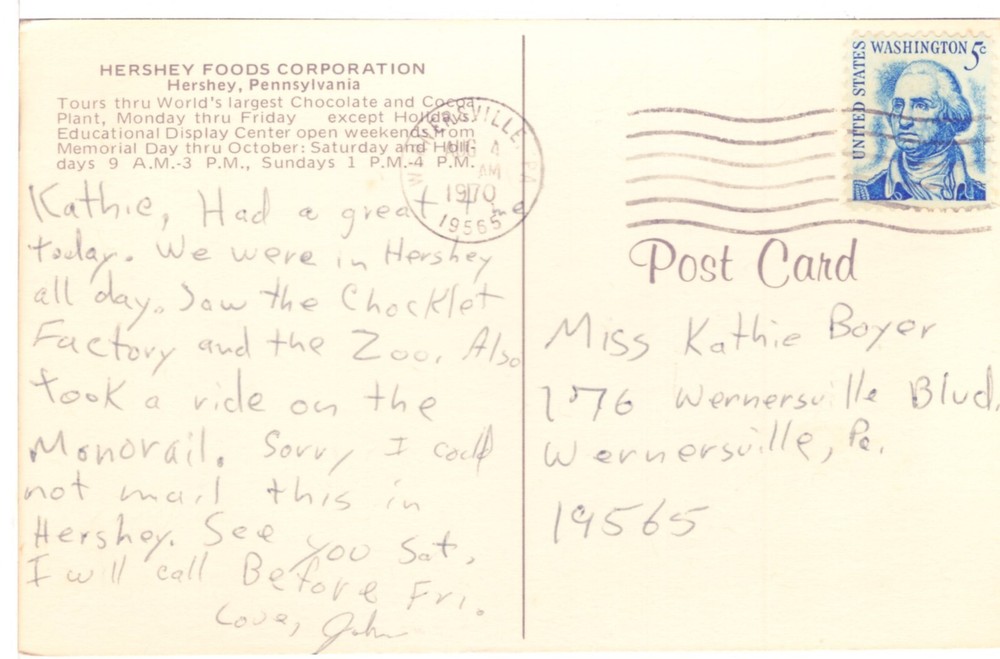 HERSHEY FOODS CORPORATION
Hershey, Pennsylvania
Tours thru World's largest Chocolate and Cocoa
Plant, Monday thru Friday except Holidays.
Educational Display Center open weekends from
Memorial Day thru October: Saturday and Holi-
days 9 A.M.-3 P.M., Sundays 1 P.M.-4 P.M.
WERNERSVILLE, PA
AUG 4
AM
1970
19565
UNITED STATES
WASHINGTON 5c
Kathie, Had a great time
today. We were in Hershey
all day. Saw the Chocklet
Factory and the Zoo. Also
took a ride on the
Monorail. Sorry I could
not mail this in
Hershey. See you Sat.
I will call Before Fri.
Love, John
Post Card
Miss Kathie Boyer
Wernersville Blvd.
Wernersville, Pa.
19565